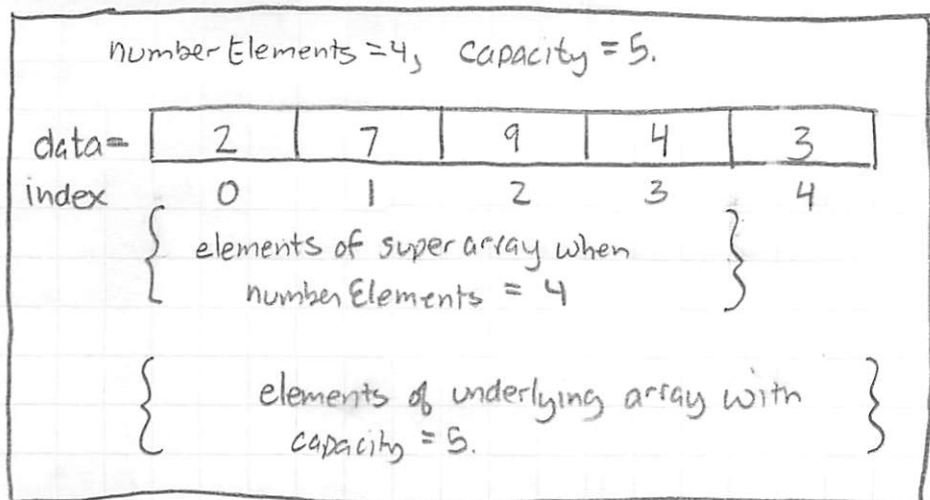 numberElements = 4, capacity = 5.
data= 2 7 9 4 3
index 0 1 2 3 4
{ elements of super array when }
numberElements = 4
{ elements of underlying array with }
capacity = 5.